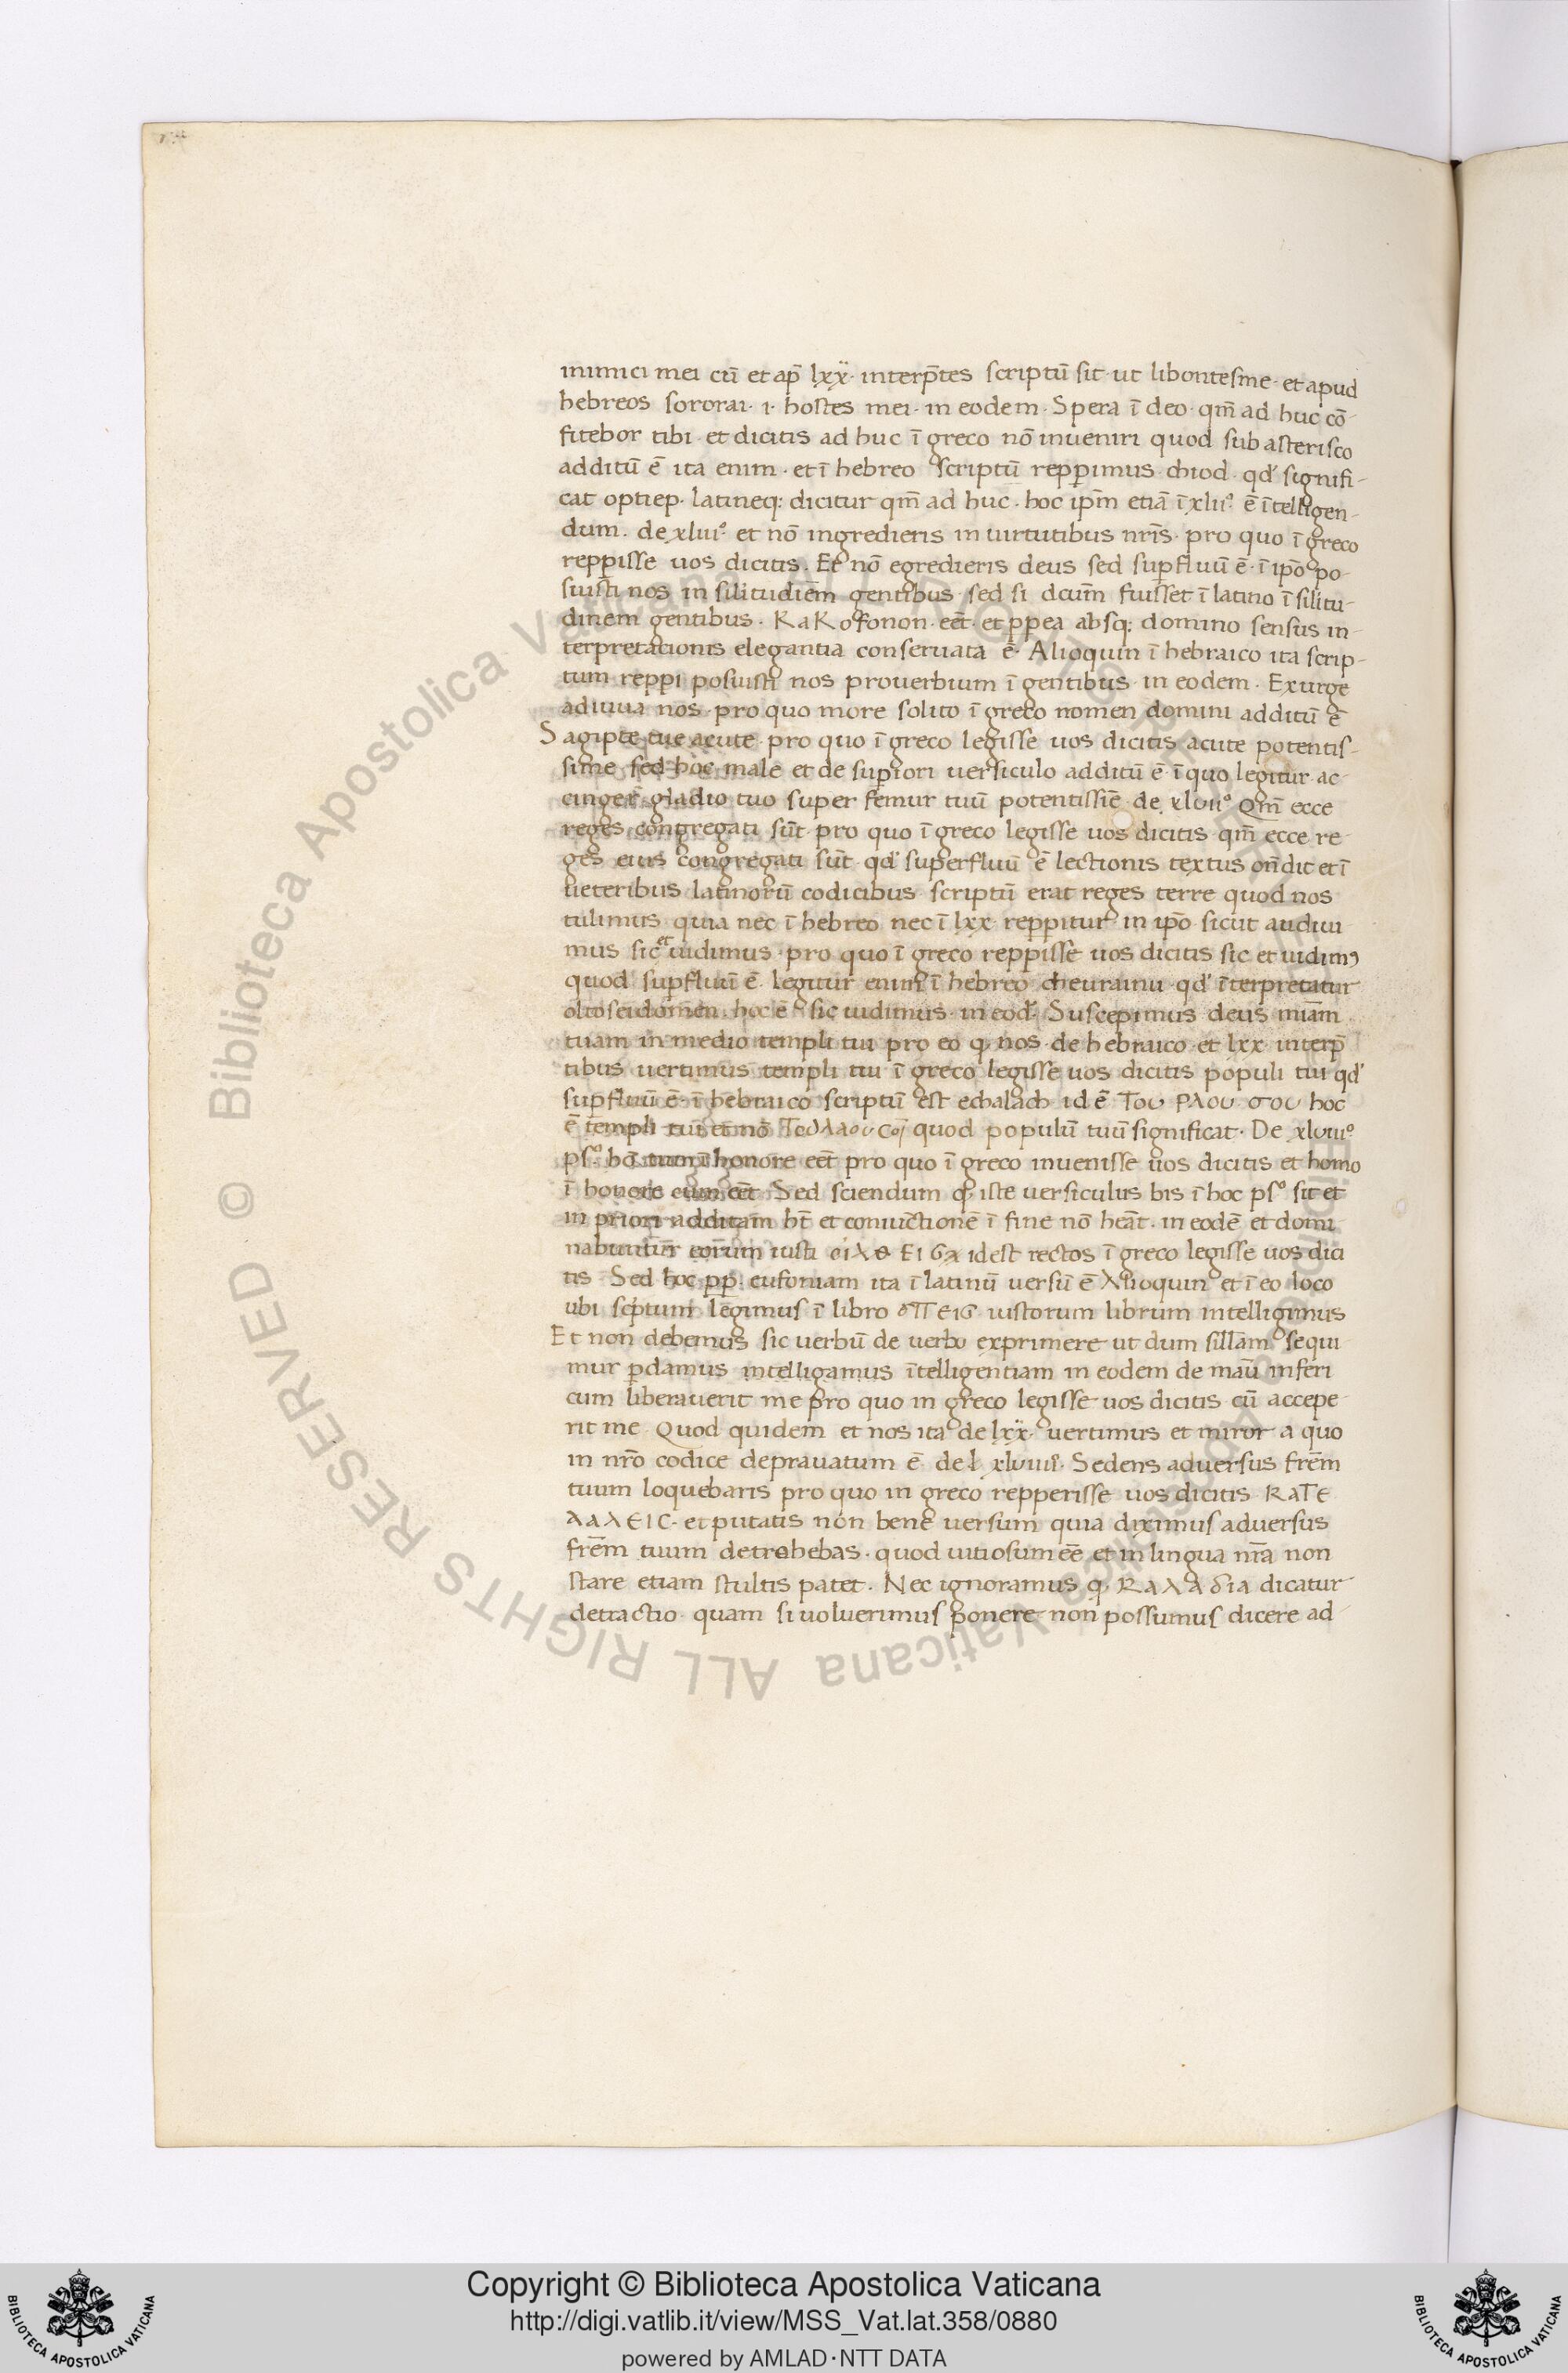 inimici mei cū et ap̄ lxx̄· interp̄tes scriptū sit· ut libontesme· et apud
hebreos sororai· i· hostes mei· in eodem· Spera ī deo· qm̄ ad huc cō-
fitebor tibi· et dicitis ad huc ī greco nō inueniri quod sub asterisco
additū ē ita enim· et ī hebreo scriptū repperimus· chiod· qd' signifi-
cat optiep· latineq; dicitur qm̄ ad huc· hoc ip̄m etiā ī xlii° ē ītelligen-
dum· de xliii° et nō ingredieris in uirtutibus nr̄is· pro quo ī greco
repp̄isse uos dicitis· Et nō egredieris deus sed sup̄fluū ē· ī ip̄o po-
suisti nos in silitudiēm gentibus· sed si dcūm fuisset ī latino ī silitu-
dinem gentibus· KaKofonon· eēt· et p̄p̄ea absq; domino sensus in-
terpretationis elegantia conseruata ē· Alioquin ī hebraico ita scrip-
tum repp̄i posuisti nos prouerbium ī gentibus· in eodem· Exurge
adiuua nos· pro quo more solito ī greco nomen domini additū ē
Sagipte tue acute· pro quo ī greco legisse uos dicitis acute potentis-
sime sed hoc male et de sup̄iori uersiculo additū ē· ī quo legitur· ac-
cingere gladio tuo super femur tuū potentissiē· de xlvii° Qm̄ ecce
reges congregati sūt· pro quo ī greco legisse uos dicitis· qm̄ ecce re-
ges eius congregati sūt· qd' superfluū ē lectionis textus on̄dit et ī
ueteribus latinorū codicibus· scriptū erat reges terre quod nos
tulimus· quia nec ī hebreo nec ī lxx· repp̄itur· in ip̄o· sicut audiui
mus sic et uidimus· pro quo ī greco repp̄isse uos dicitis sic et uidimꝯ
quod sup̄fluū ē· legitur enim ī hebreo cheurainu· qd' īterpretatur
oltoseidomen· hoc ē sic uidimus· in eod· Suscepimus deus mīam
tuam in medio templi tui pro eo q· nos· de hebraico· et lxx· interp̄
tibus uertimus templi tui ī greco legisse uos dicitis populi tui qd'
sup̄fluū ē· ī hebraico scriptū est echalach id ē Του ΡΛου σου hoc
ē templi tui et nō Τουλαου σοι quod populū tuū significat· De xlviii°
ps° hō cum ī honore eēt pro quo ī greco inuenisse uos dicitis et homo
ī honore cum eēt Sed sciendum q· iste uersiculus bis ī hoc ps° sit et
in priori additam hī et coniūctionē ī fine nō heāt· in eodē et domi
nabuntur eorum iusti οιλθ ΕΙ Gα idest rectos ī greco legisse uos dici
tis Sed hoc pp̄· eufoniam ita ī latinū uersū ē Alioquin et ī eo loco
ubi scp̄tum legimus ī libro οΠΕΙG iustorum librum intelligimus
Et non debemus sic uerbū de uerbo exprimere ut dum sillam sequi
mur p̄damus intelligamus ītelligentiam in eodem de maū inferi
cum liberauerit me pro quo in greco legisse uos dicitis cū accepe-
rit me· Quod quidem et nos ita de lxx̄· uertimus et miror a quo
in nr̄o codice deprauatum ē de l· xlviiii· Sedens aduersus frēm
tuum loquebaris pro quo in greco repperisse uos dicitis· ΚαΤΕ
λαλΕΙC· et putatis non bene uersum quia diximus aduersus
frēm tuum detrohebas· quod uitiosum eē et in lingua nr̄a non
stare etiam stultis patet· Nec ignoramus q· Καλαδια dicatur
detractio· quam si uoluerimus ponere· non possumus dicere ad-
Copyright © Biblioteca Apostolica Vaticana
http://digi.vatlib.it/view/MSS_Vat.lat.358/0880
powered by AMLAD·NTT DATA
© Biblioteca Apostolica Vaticana ALL RIGHTS RESERVED
BIBLIOTECA APOSTOLICA VATICANA
BIBLIOTECA APOSTOLICA VATICANA